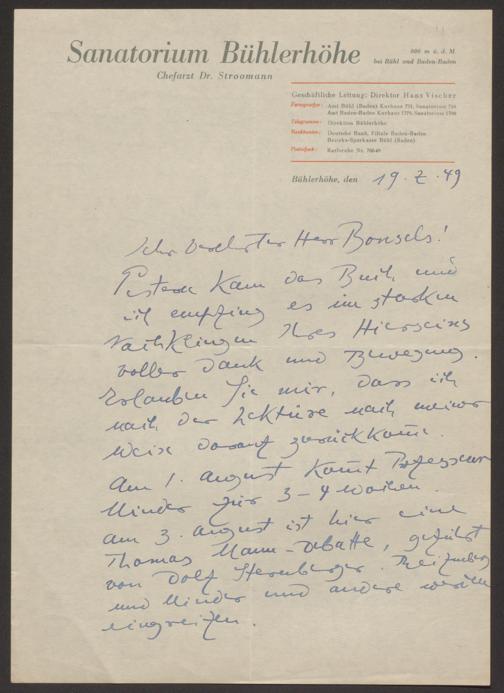 Sanatorium Bühlerhöhe
Chefarzt Dr. Stroomann
800 m ü. d. M.
bei Bühl und Baden-Baden
Geschäftliche Leitung: Direktor Hans Vischer
Fernsprecher: Amt Bühl (Baden) Kurhaus 751, Sanatorium
Amt Baden-Baden Kurhaus 1379, Sanatorium
Telegramme: Direktion Bühlerhöhe
Bankkonten: Deutsche Bank, Filiale Baden-Baden
Bezirks-Sparkasse Bühl (Baden)
Postscheck: Karlsruhe Nr.
Bühlerhöhe, den 19. Z. 49
Sehr verehrter Herr Bonsels!
Gestern kam das Buch und
ich empfing es im starken
Nachklingen Ihres Hierseins
voller Dank und Bewegung.
Erlauben Sie mir, dass ich
nach der Lektüre nach meiner
Weise darauf zurückkomme.
Am 1. August kommt Professor
Minder für 3-4 Wochen.
Am 3. August ist hier eine
Thomas Mann-Debatte, geführt
von Dolf Sternberger.
und Minder und andere werden
eingreifen.